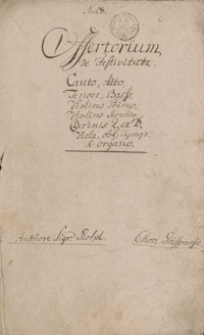 Offertorium
de Festivitate.
Canto, Alto,
Tenore, Basso,
Violino Primo,
Violino Secundo,
Clarinis 2. ex D.
Viola, obl.
& organo.
Authore Sigr.
Chori